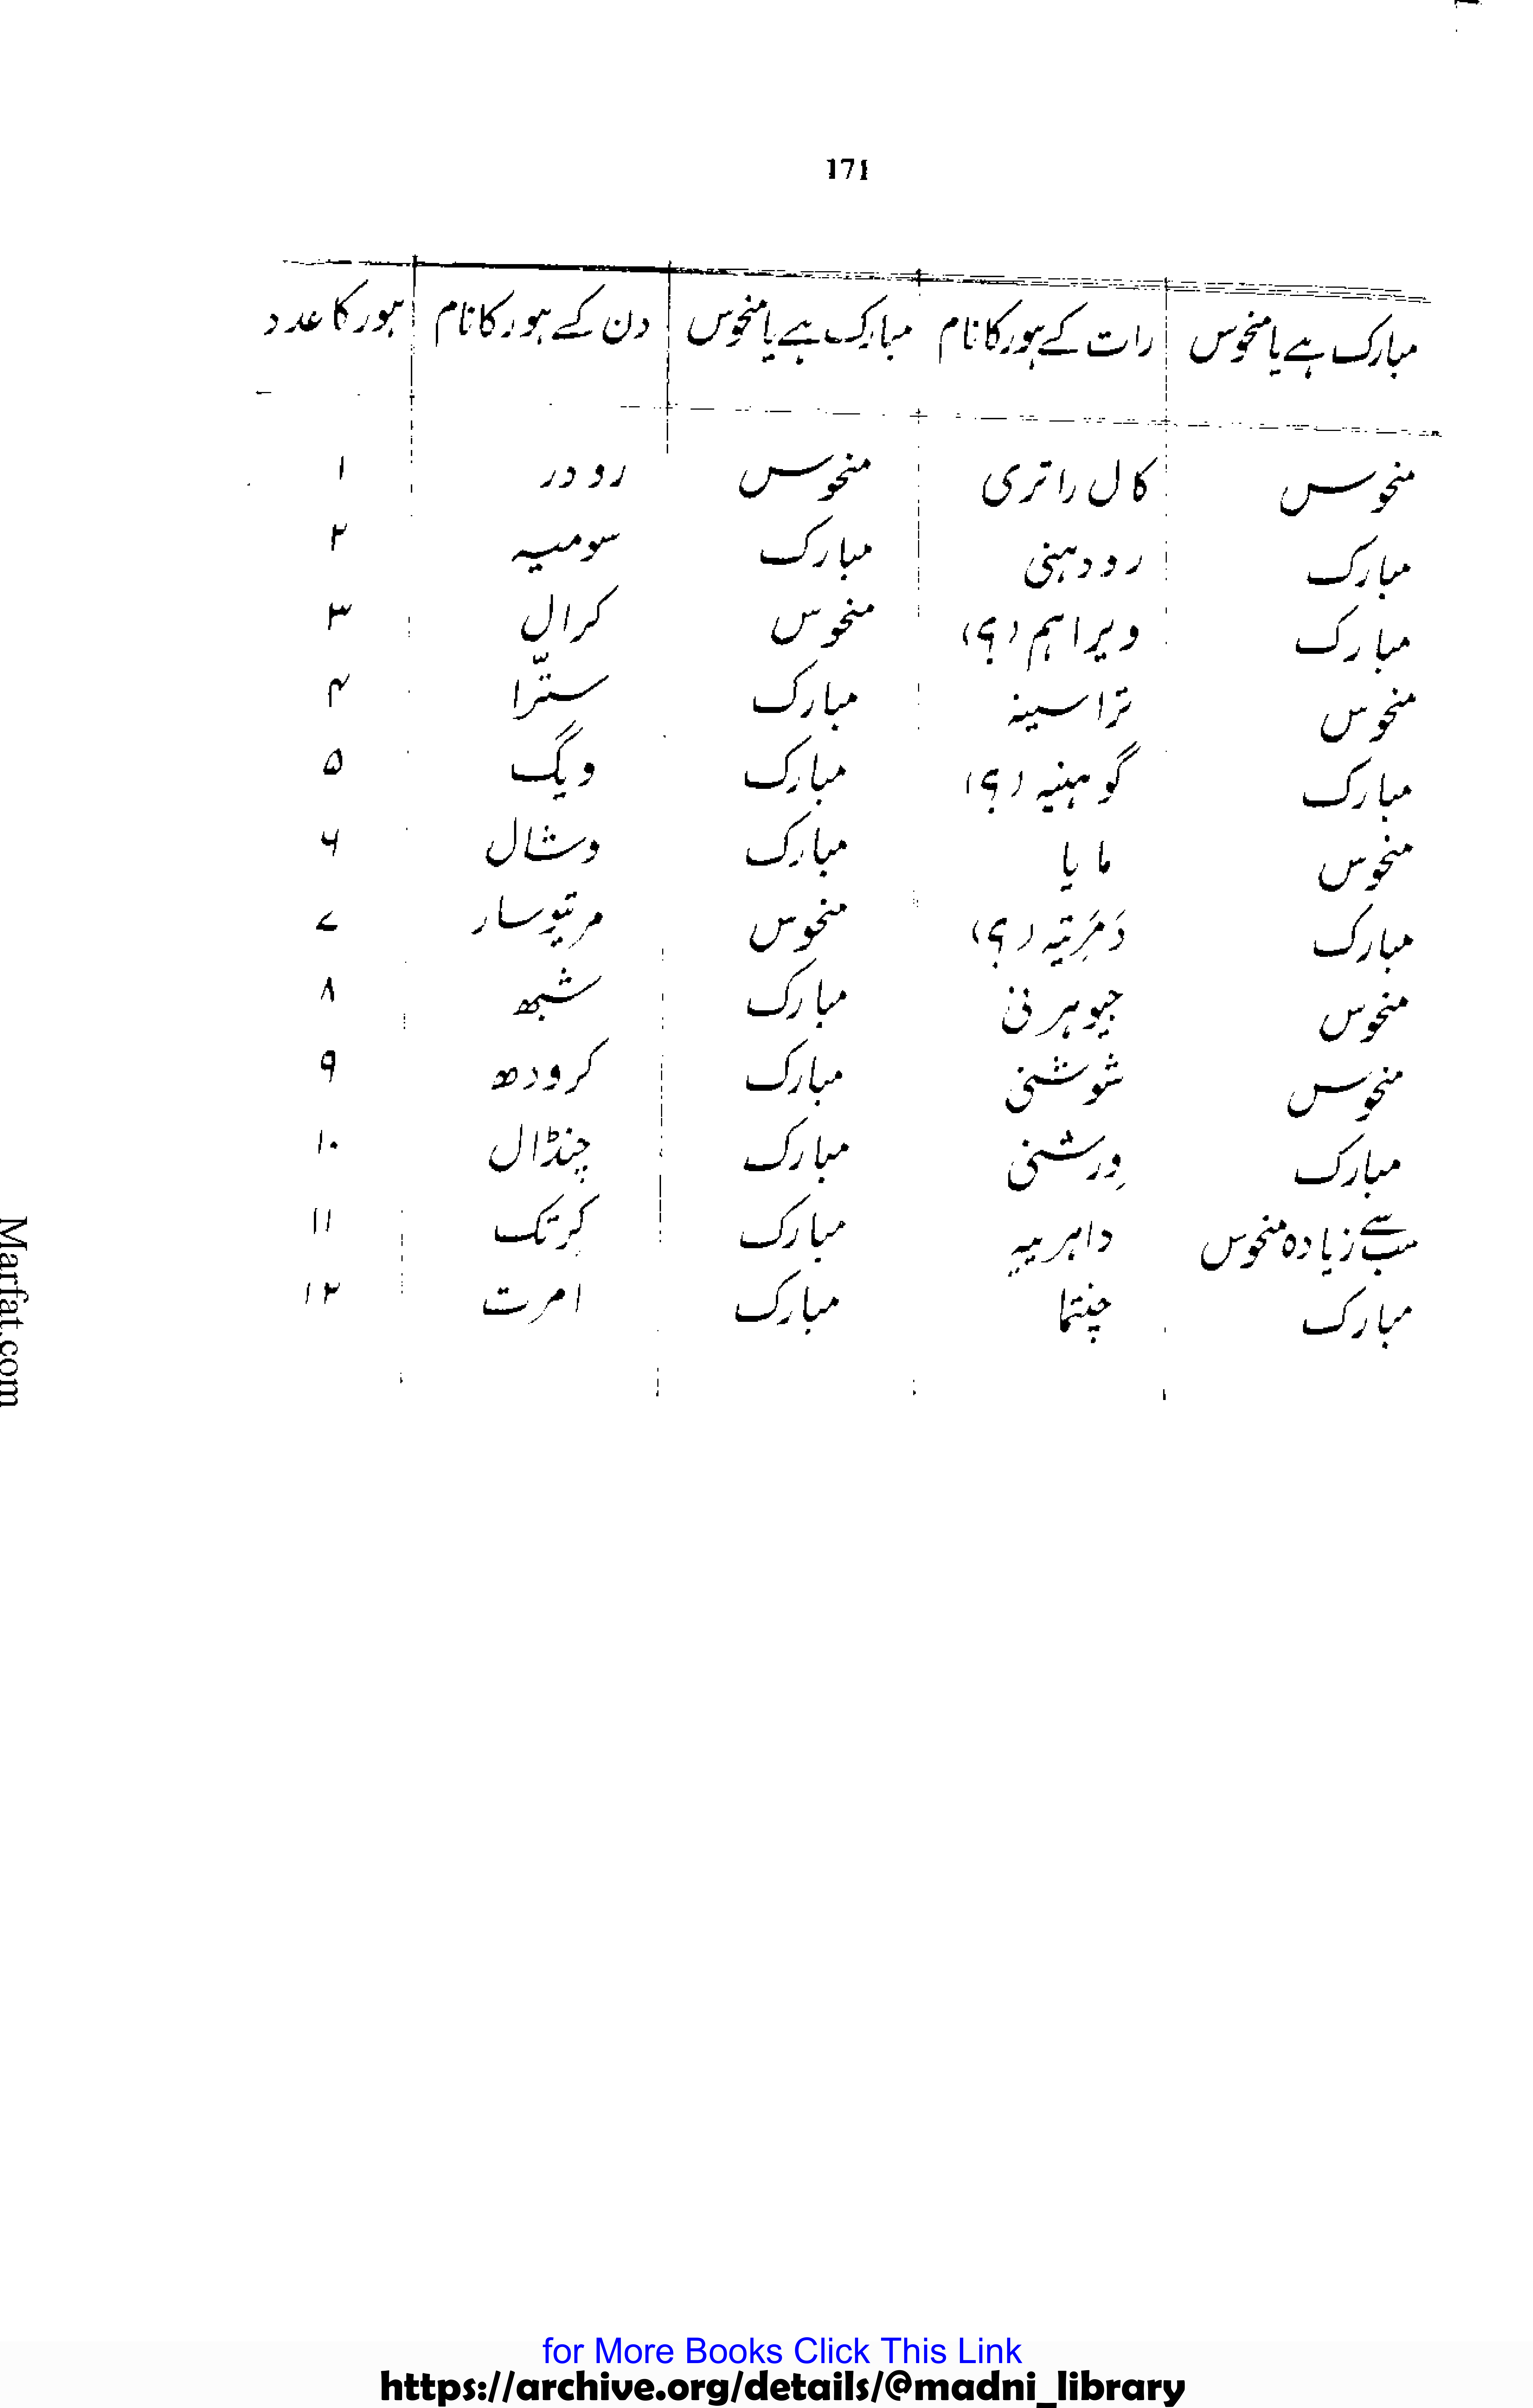 171
مبارک ہے یا منحوس رات کے ہور کا نام مبارک ہے یا منحوس دن کے ہور کا نام ہور کا عدد
منحوس کال راتری منحوس رودر ۱
مبارک رودہنی مبارک سومیہ ۲
مبارک ویراہم (؟) منحوس کرال ۳
منحوس تراسینہ مبارک ستّرا ۴
مبارک گوہنیہ (؟) مبارک ویگ ۵
منحوس مایا مبارک وشال ۶
مبارک دَمَرِتیہ (؟) منحوس مرتیوسار ۷
منحوس جیوہرنی مبارک شبھ ۸
منحوس شوشنی مبارک کرودھ ۹
مبارک وِرشنی مبارک چنڈال ۱۰
سب سے زیادہ منحوس داہریہ مبارک کرِتک ۱۱
مبارک چنتا مبارک امرت ۱۲
Marfat.com
for More Books Click This Link
https://archive.org/details/@madni_library